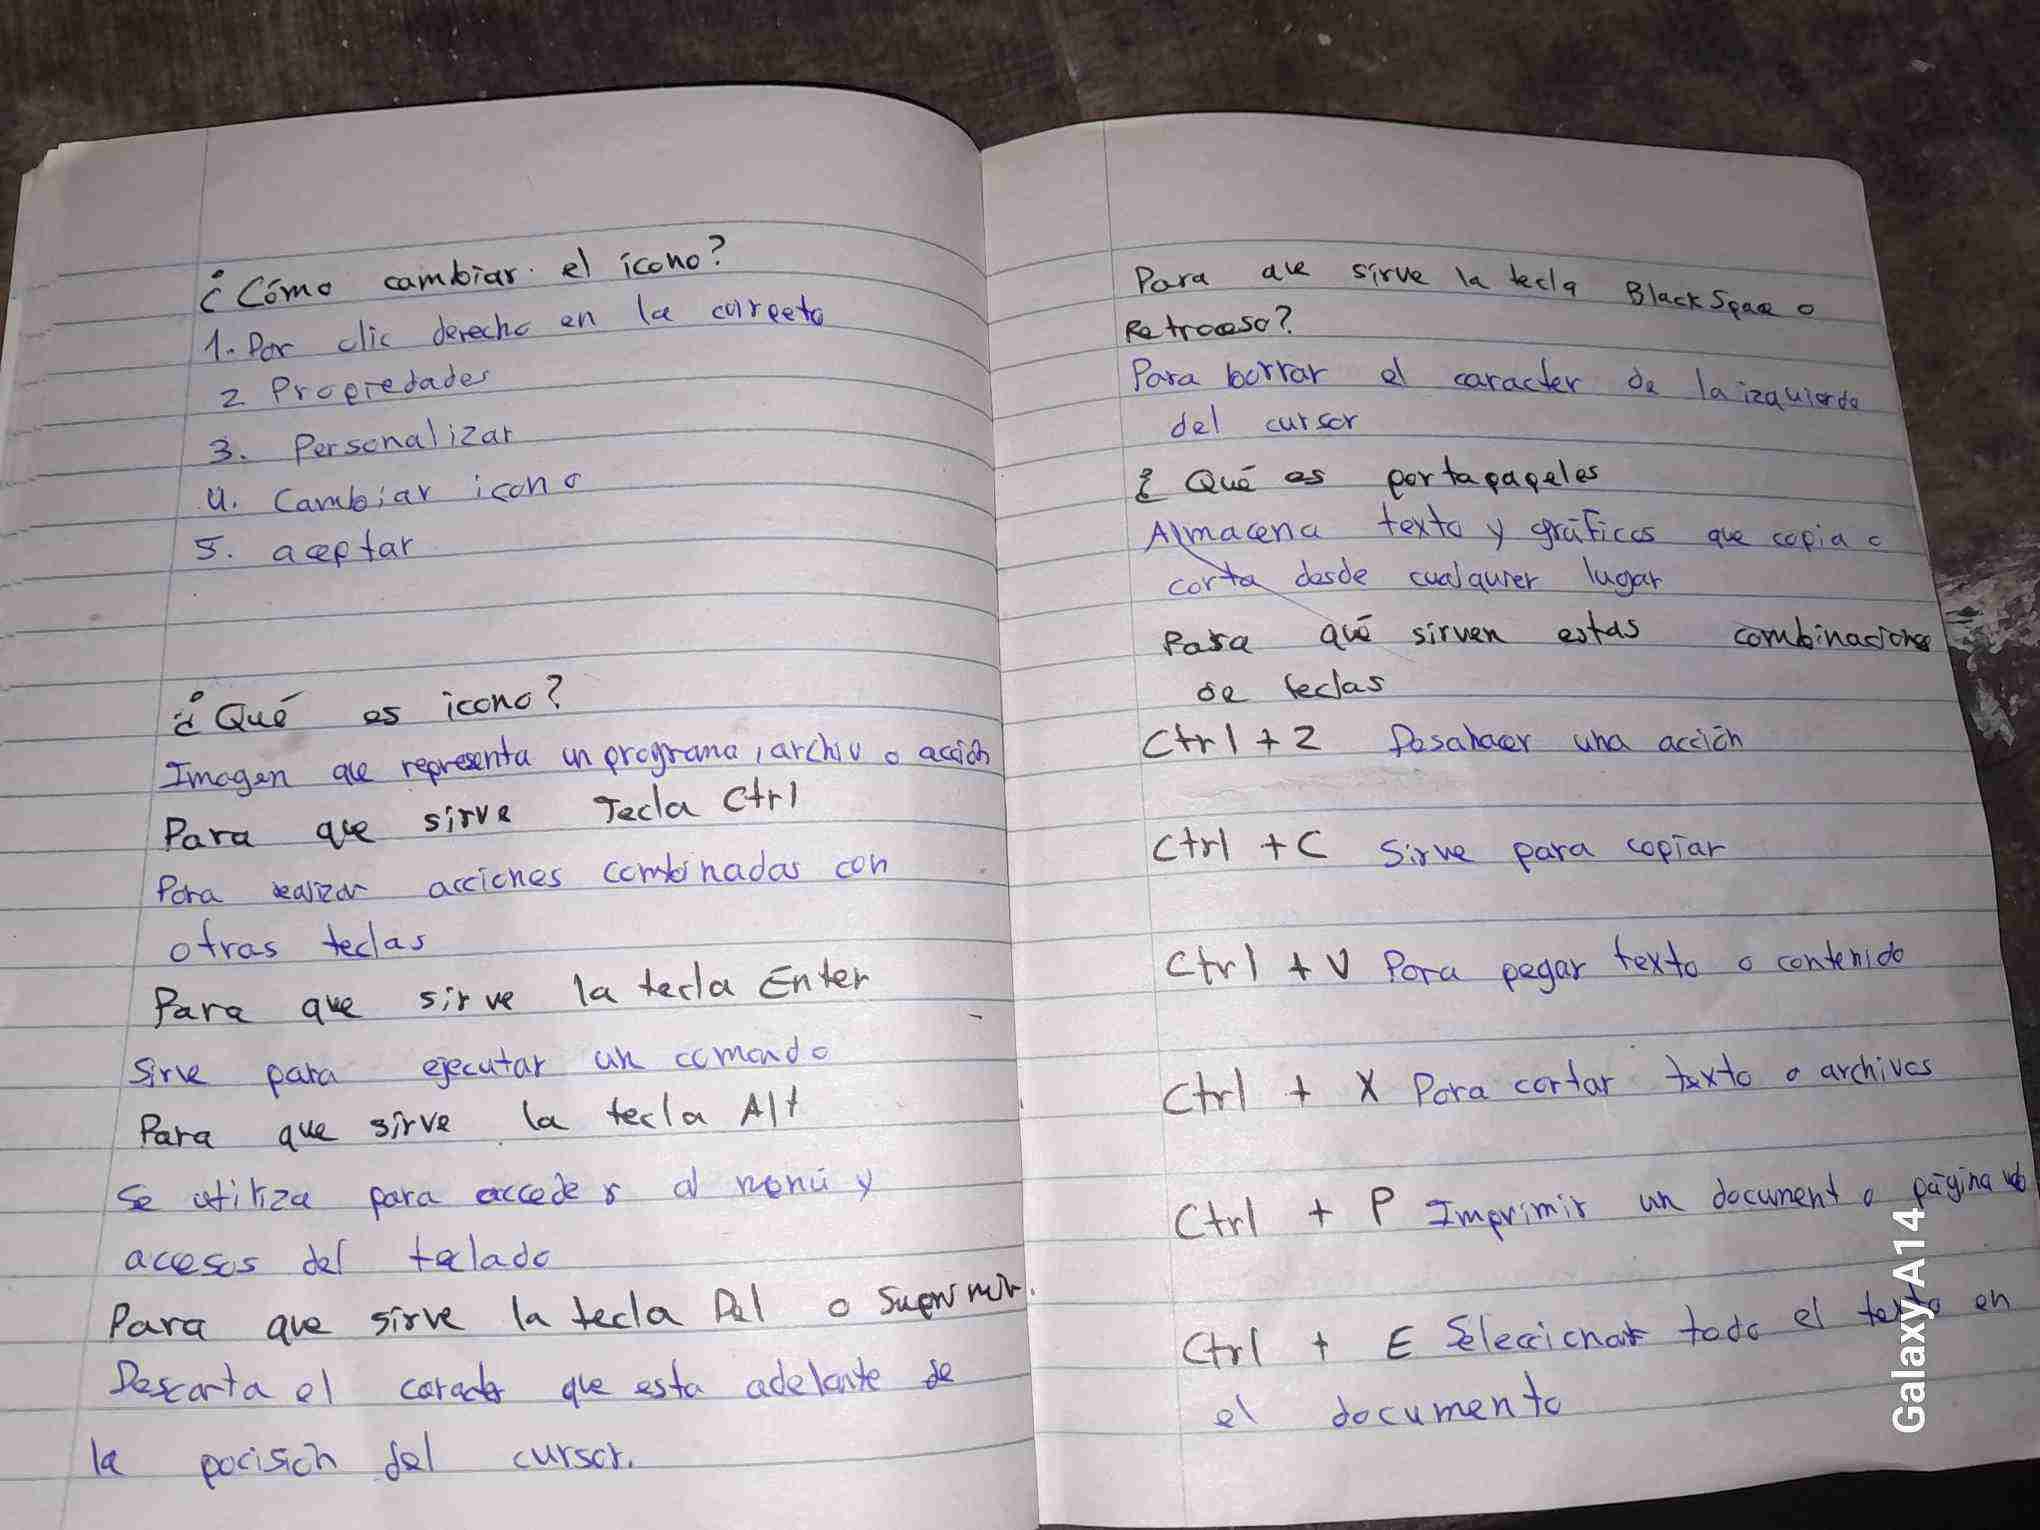 ¿Cómo cambiar el ícono?
1. Por clic derecho en la carpeta
2 Propiedades
3. Personalizar
4. Cambiar icono
5. aceptar
¿Qué es icono?
Imagen que representa un programa, archivo o acción
Para que sirve Tecla Ctrl
Para realizar acciones combinadas con
otras teclas
Para que sirve la tecla Enter
Sirve para ejecutar un comando
Para que sirve la tecla Alt
Se utiliza para acceder al menú y
accesos del teclado
Para que sirve la tecla Del o Suprimir.
Descarta el caracter que esta adelante de
la pocisión del cursor.
Para que sirve la tecla BlackSpace o
Retroceso?
Para borrar el caracter de la izquierda
del cursor
¿Qué es portapapeles
Almacena texto y gráficos que copia o
corta desde cualquier lugar
Para qué sirven estas combinaciones
de teclas
Ctrl + Z Desahacer una acción
Ctrl + C Sirve para copiar
Ctrl + V Para pegar texto o contenido
Ctrl + X Para cortar texto o archivos
Ctrl + P Imprimir un document o página web
Ctrl + E Seleccionar todo el texto en
el documento
Galaxy A14